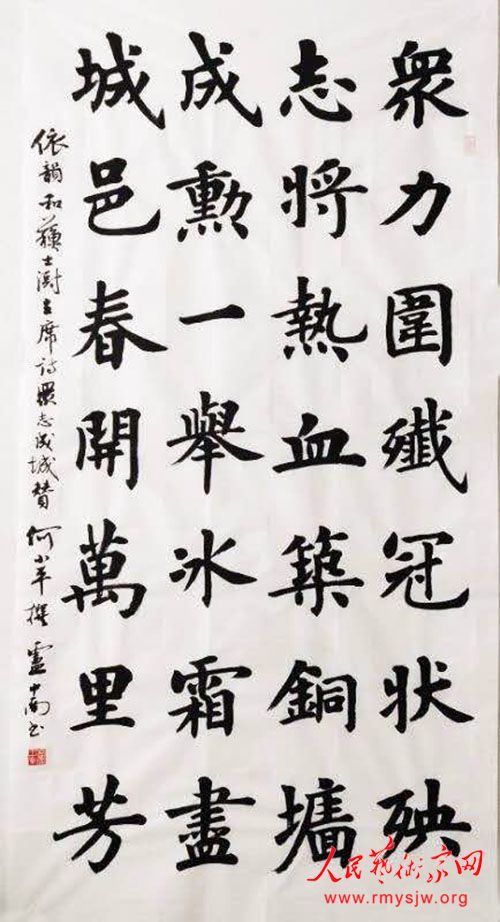 眾力圍殲冠状殃
志將熱血築銅墻
成勳一舉冰霜盡
城邑春開萬里芳
依韻和蘇士澍主席詩眾志成城贊 何小平撰 盧中南书
人民藝術家网
www.rmysjw.org